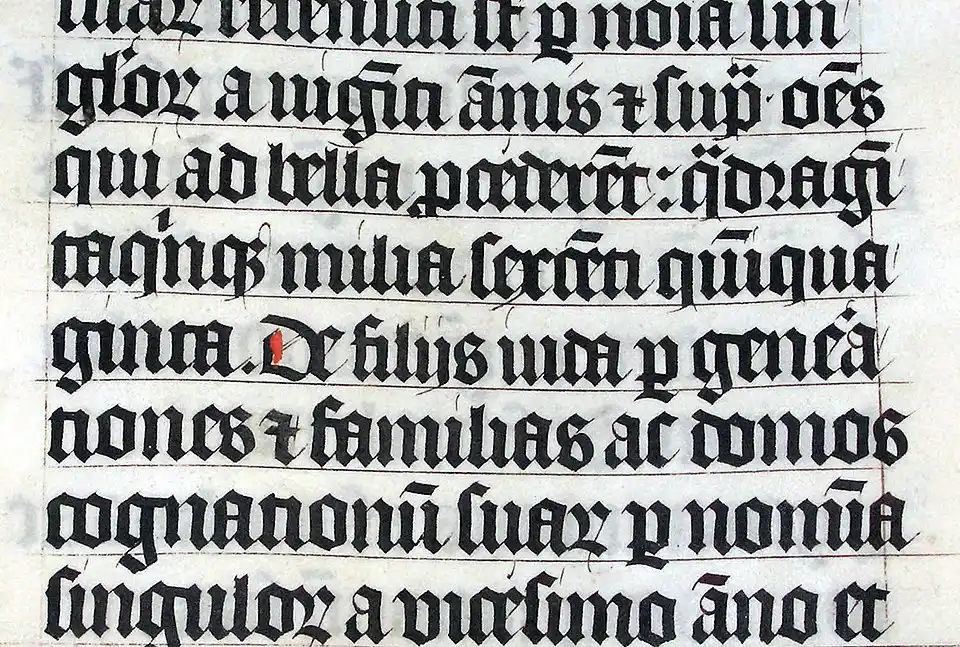 suaꝝ recensiti st̄ ꝑ noīa sin
gl'oꝝ a uigīti ānis ⁊ sup̄· oēs
qui ad bella ꝓcederēt: qᷓdragī
taqⁱnqꝫ milia sexcēti qūiqua
ginta. De filijs iuda ꝑ gen̄cᷓa
tiones ⁊ familias ac domos
cognationū suaꝝ ꝑ nomīa
singuloꝝ a uicesimo āno et